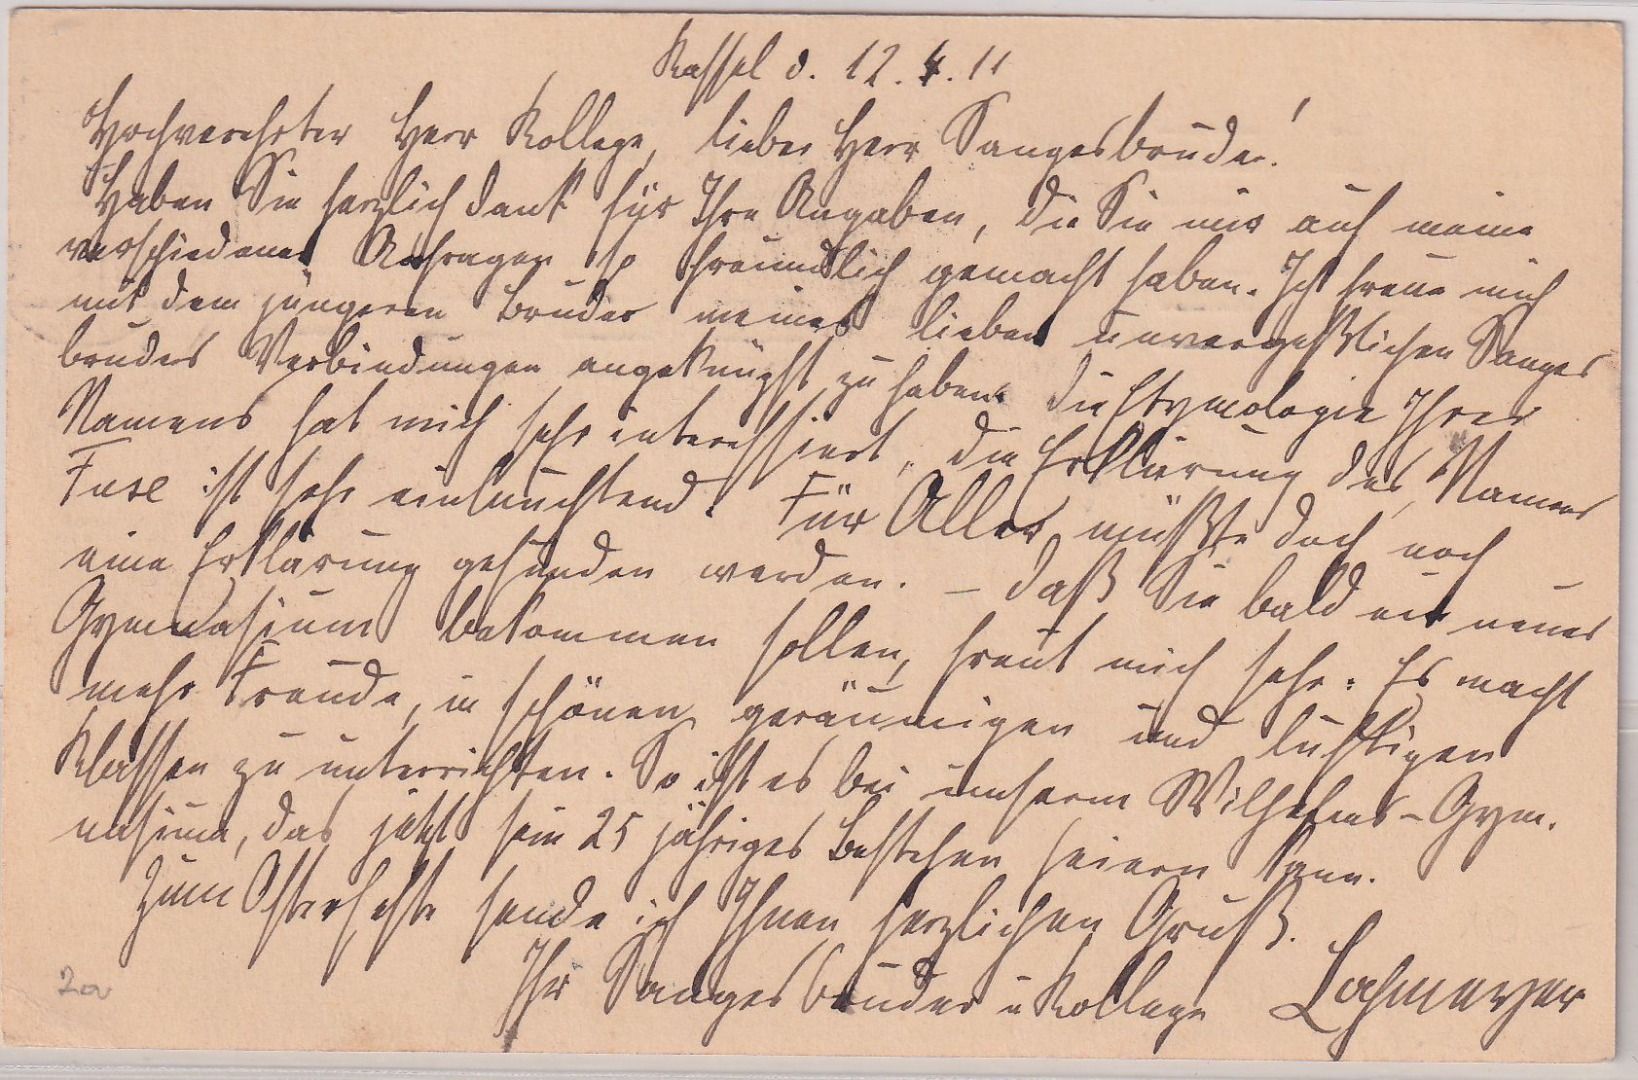 Kassel d. 12.4.11
Hochverehrter Herr Kollege, lieber Herr Sangesbruder!
Haben Sie herzlich Dank für Ihre Angaben, die Sie mir auf meine
verschiedenen Anfragen so freundlich gemacht haben. Ich freue mich
mit dem jüngeren Bruder meines lieben unvergeßlichen Sanges
bruders Verbindungen angeknüpft zu haben. Die Etymologie Ihres
Namens hat mich sehr interessiert, die Erklärung des Namens
Fuse ist sehr einleuchtend. Für Aller müßte doch noch
eine Erklärung gefunden werden. – Daß Sie bald ein neues
Gymnasium bekommen sollen, freut mich sehr. Es macht
mehr Freude, in schönen geräumigen und luftigen
Klassen zu unterrichten. So ist es bei unserm Wilhelms-Gym.
nasium, das jetzt sein 25 jähriges Bestehen feiern kann.
Zum Osterfeste sende ich Ihnen herzlichen Gruß.
Ihr Sangesbruder u Kollege Lahmeyer